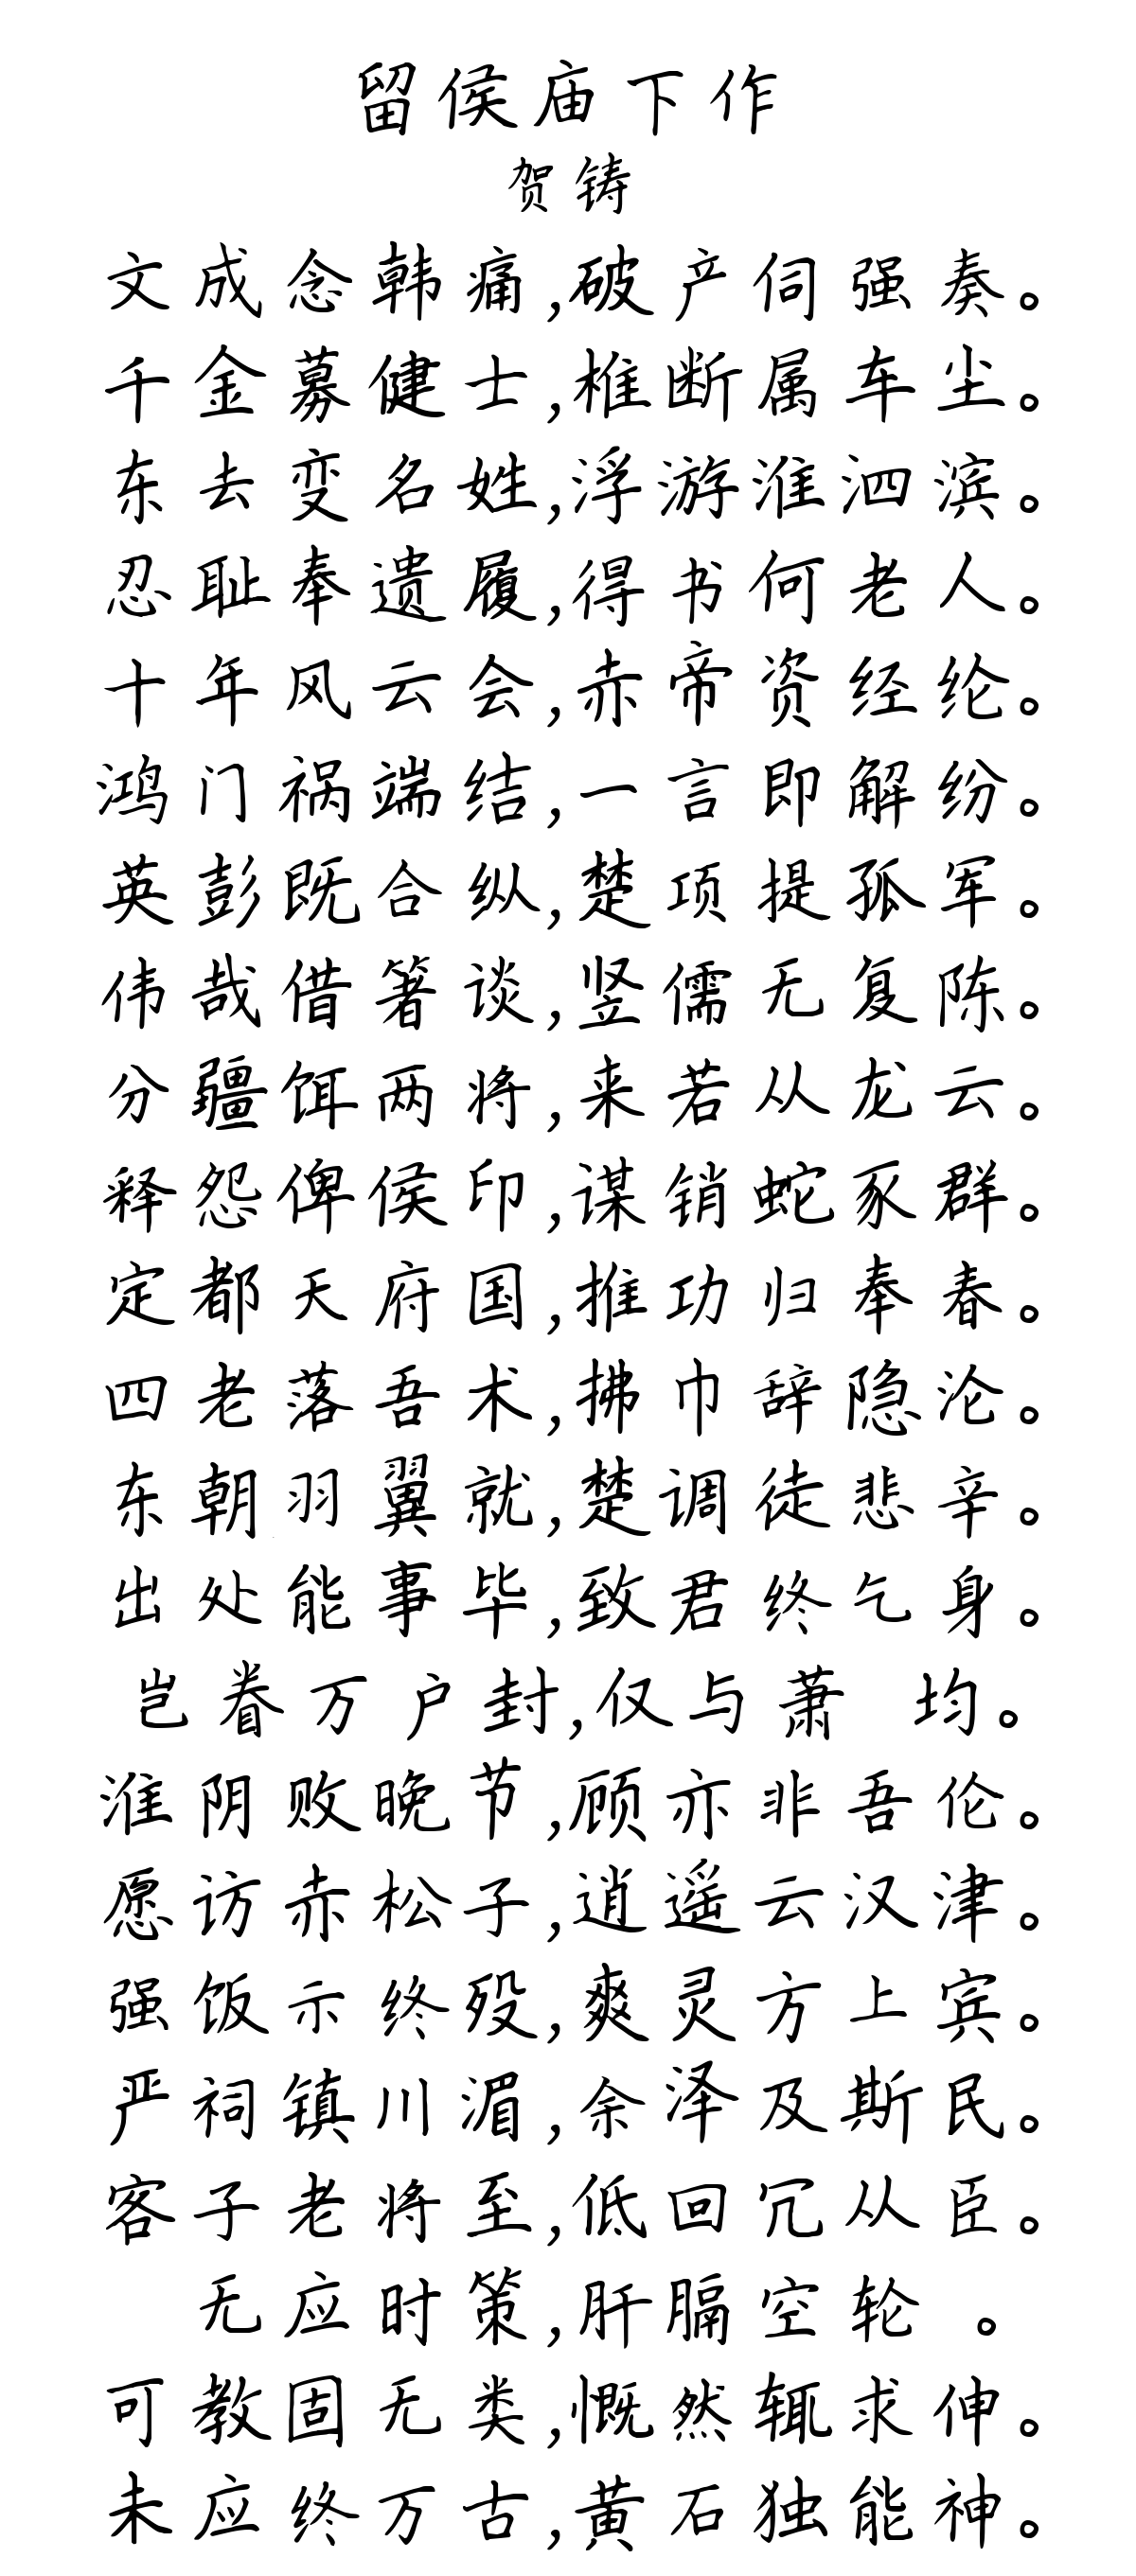 留侯庙下作
贺铸
文成念韩痛,破产伺强秦。
千金募健士,椎断属车尘。
东去变名姓,浮游淮泗滨。
忍耻奉遗履,得书何老人。
十年风云会,赤帝资经纶。
鸿门祸端结,一言即解纷。
英彭既合纵,楚项提孤军。
伟哉借箸谈,竖儒无复陈。
分疆饵两将,来若从龙云。
释怨俾侯印,谋销蛇豕群。
定都天府国,推功归奉春。
四老落吾术,拂巾辞隐沦。
东朝羽翼就,楚调徒悲辛。
出处能事毕,致君终乞身。
岂眷万户封,仅与萧 均。
淮阴败晚节,顾亦非吾伦。
愿访赤松子,逍遥云汉津。
强饭示终殁,爽灵方上宾。
严祠镇川湄,余泽及斯民。
客子老将至,低回冗从臣。
无应时策,肝膈空轮 。
可教固无类,慨然辄求伸。
未应终万古,黄石独能神。